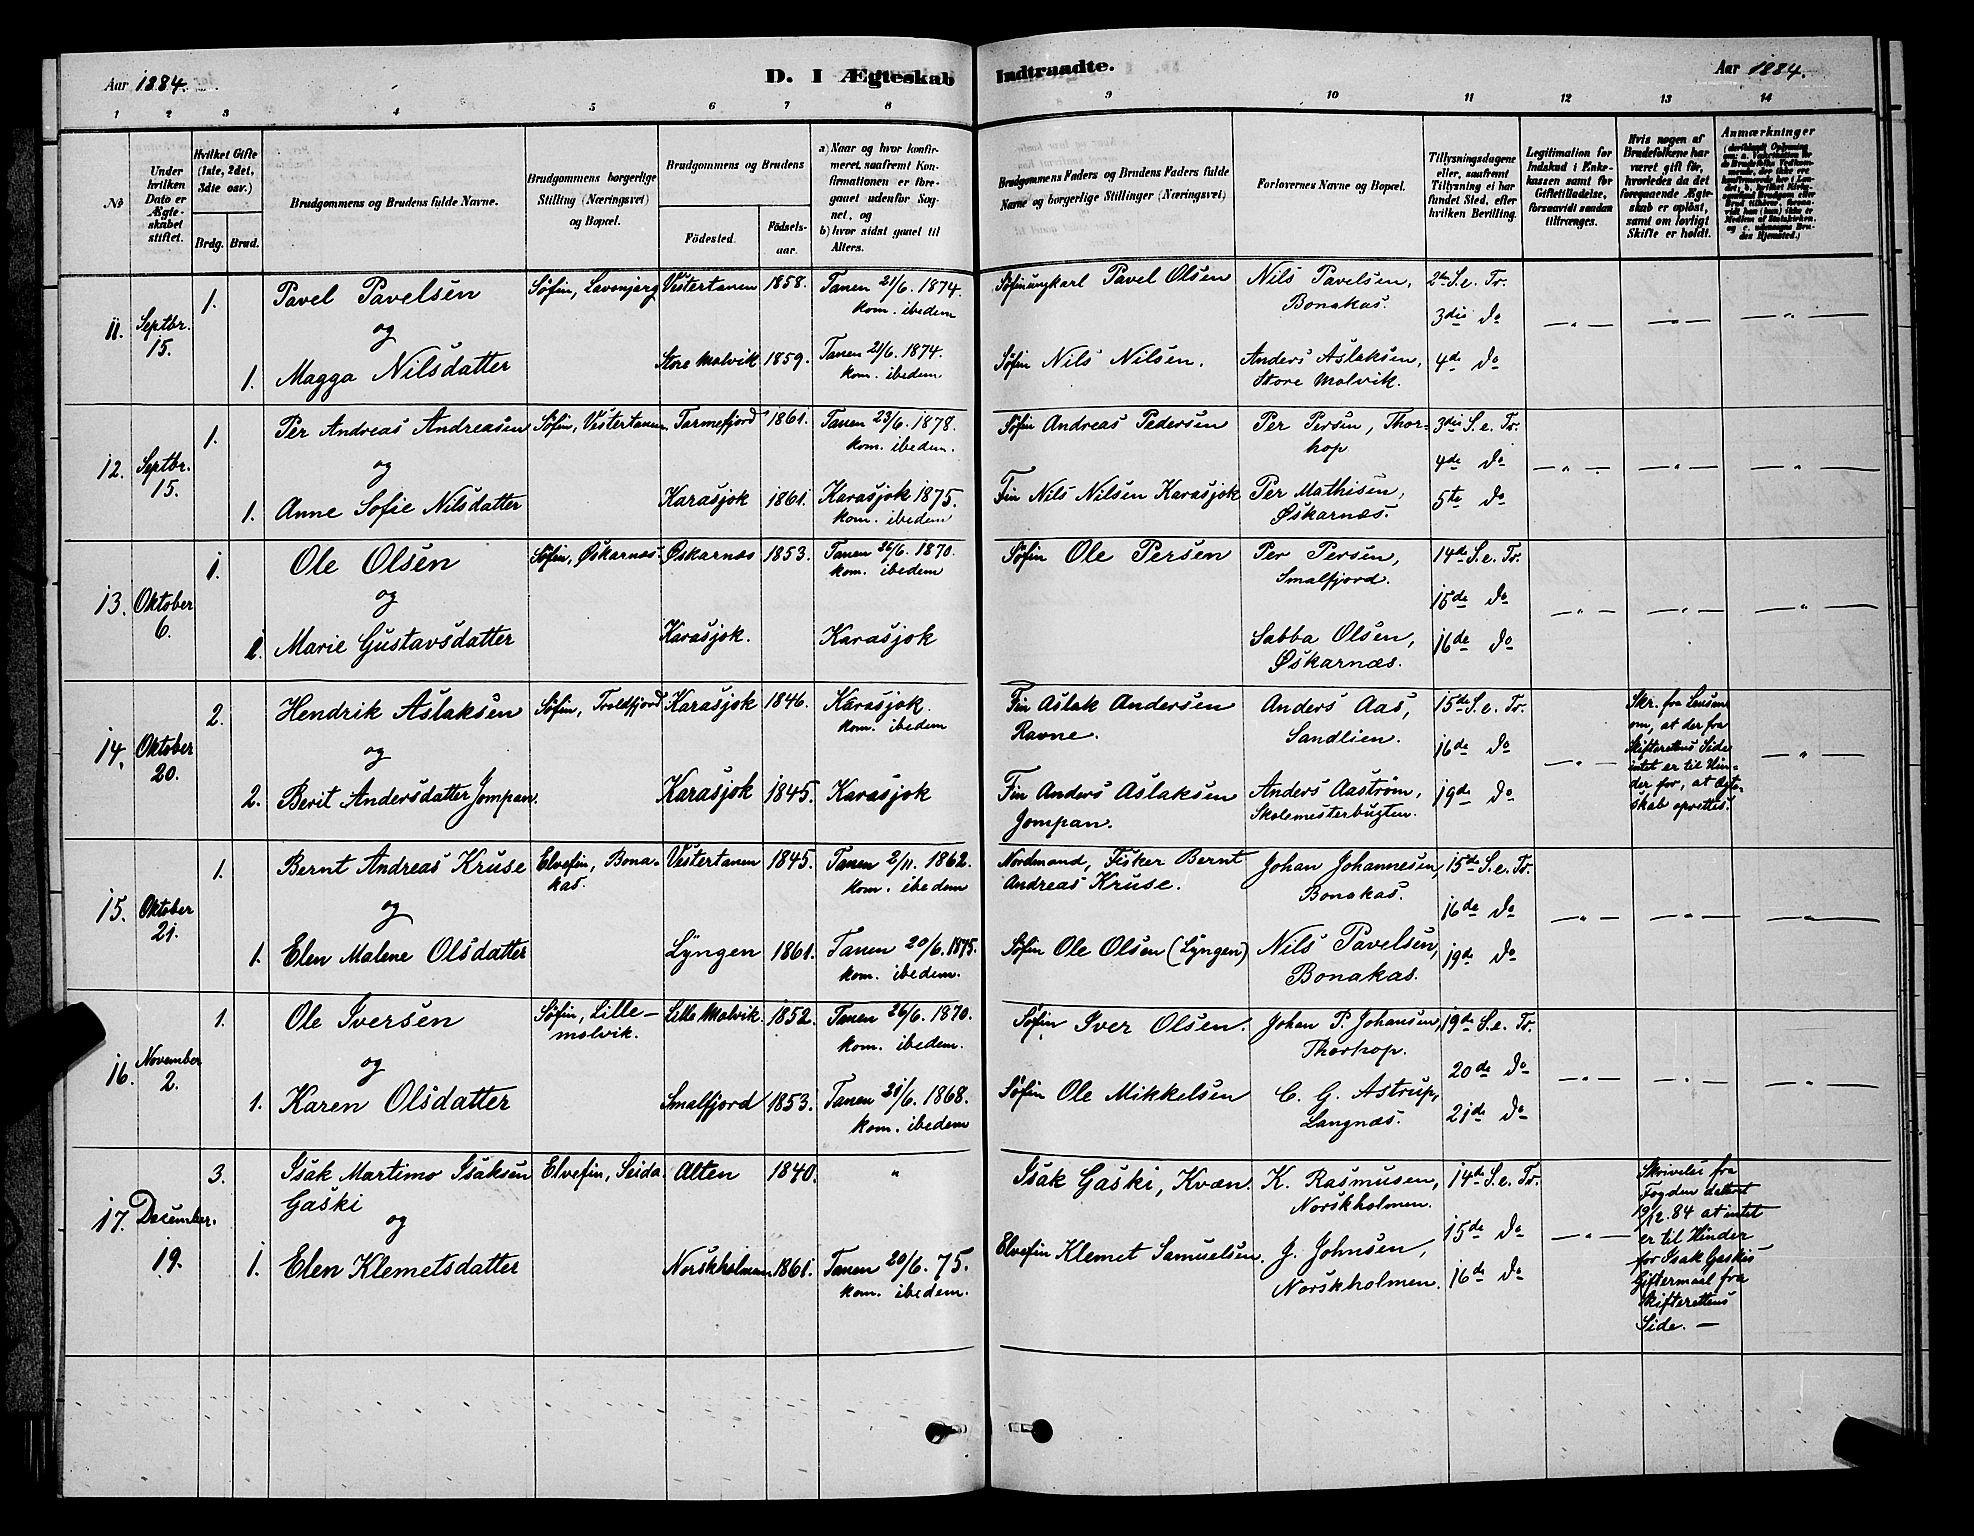 Aar 1884.
D. I Ægteskab Indtraadte.
Aar 1884.
1 2 3 4 5 6 7 8 9 10 11 12 13 14
No
Under hvilken Dato er Ægteskabet stiftet.
Hvilket Gifte (1ste, 2det, 3die osv.)
Brdg. Brud.
Brudgommens og Brudens fulde Navne.
Brudgommens borgerlige Stilling (Næringsvei) og Bopæl.
Brudgommens og Brudens
Födested.
Födselsaar.
a) Naar og hvor konfirmeret, saafremt Konfirmationen er foregaaet udenfor Sognet, og
b) hvor sidst gaaet til Alters.
Brudgommens Faders og Brudens Faders fulde Navne og borgerlige Stillinger (Næringsvei)
Forlovernes Navne og Bopæl.
Tillysningsdagene eller, saafremt Tillysning ei har fundet Sted, efter hvilken Bevilling.
Legitimation for Indskud i Enkekassen samt for Giftetilladelse, forsaavidt saadan tiltrænges.
Hvis nogen af Brudefolkene har været gift för, hvorledes da det foregaaende Ægteskab er oplöst, samt om lovligt Skifte er holdt.
Anmærkninger
11. Septbr. 15.
1. Pavel Pavelsen
og
1. Magga Nilsdatter
Søfin, Lavonjerg
Vestertanen 1858. Tanen 21/6. 1874.
kom. ibedem
Store Molvik 1859. Tanen 21/6. 1874.
kom. ibedem
Søfinungkarl Pavel Olsen
Søfin Nils Nilsen.
Nils Pavelsen,
Bonakas.
Anders Aslaksen,
Store Molvik.
2den S. e. Tr.
3die do
4de do
12. Septbr. 15.
1. Per Andreas Andreasen
og
1. Anne Sofie Nilsdatter
Søfin, Vestertanen.
Tarmefjord 1861. Tanen 23/6. 1878.
kom. ibedem.
Karasjok 1861. Karasjok 1875.
kom. ibedem
Søfin Andreas Pedersen
Fin Nils Nilsen Karasjok
Per Persen, Thorhop
Per Mathisen,
Øskarnæs.
3die S. e. Tr.
4de do
5te do
13. Oktober 6.
1. Ole Olsen
og
Marie Gustavsdatter
Søfin, Øskarnæs.
Øskarnæs 1853. Tanen 26/6. 1870.
kom. ibedem
Karasjok. Karasjok
Søfin Ole Persen
Per Persen,
Smalfjord.
Sabba Olsen,
Øskarnæs.
14de S. e. Tr.
15de do
16de do
14. Oktober 20.
2. Hendrik Aslaksen
og
2. Berit Andersdatter Jompan.
Søfin, Troldfjord
Karasjok 1846. Karasjok.
kom. ibedem
Karasjok 1845. Karasjok
Fin Aslak Andersen
Ravne.
Fin Anders Aslaksen
Jompan.
Anders Aas,
Sandlien.
Anders Aastrøm,
Skolemesterbugten.
15de S. e. Tr.
16de do
19de do
Skr. fra Lensm
om, at der fra
Skifterettens Side
intet er til Hin-
der for, at Ægte-
skab oprettes.
15. Oktober 21.
1. Bernt Andreas Kruse
og
1. Elen Malene Olsdatter
Elvefin, Bona-
kas.
Vestertanen 1845. Tanen 2/11. 1862.
kom. ibedem
Lyngen 1861. Tanen 20/6. 1875.
kom. ibedem.
Nordmand, Fisker Bernt
Andreas Kruse.
Søfin Ole Olsen (Lyngen)
Johan Johannesen,
Bonakas.
Nils Pavelsen,
Bonakas.
15de S. e. Tr.
16de do
19de do
16. November 2.
1. Ole Iversen
og
1. Karen Olsdatter
Søfin, Lille-
molvik.
Lille Molvik. 1852. Tanen 26/6. 1870.
kom. ibedem.
Smalfjord 1853. Tanen 21/6. 1868.
kom. ibedem
Søfin Iver Olsen.
Søfin Ole Mikkelsen
Johan P. Johansen,
Thorhop.
C. G. Astrup,
Langnæs.
19de S. e. Tr.
20de do
21de do
17. December. 19.
3. Isak Martimo Isaksen
Gaski
og
1. Elen Klemetsdatter
Elvefin, Seida.
Alten 1840. "
Norskholmen 1861. Tanen 20/6. 75.
kom. ibedem.
Isak Gaski, Kvæn.
Elvefin Klemet Samuelsen.
K. Rasmusen,
Norskholmen.
J. Johnsen,
Norskholmen.
14de S. e. Tr.
15de do
16de do
Skrivelse fra
Fogden dateret
19/12. 84 at intet
er til Hinder
for Isak Gaskis
Giftermaal fra
Skifterettens
Side. —